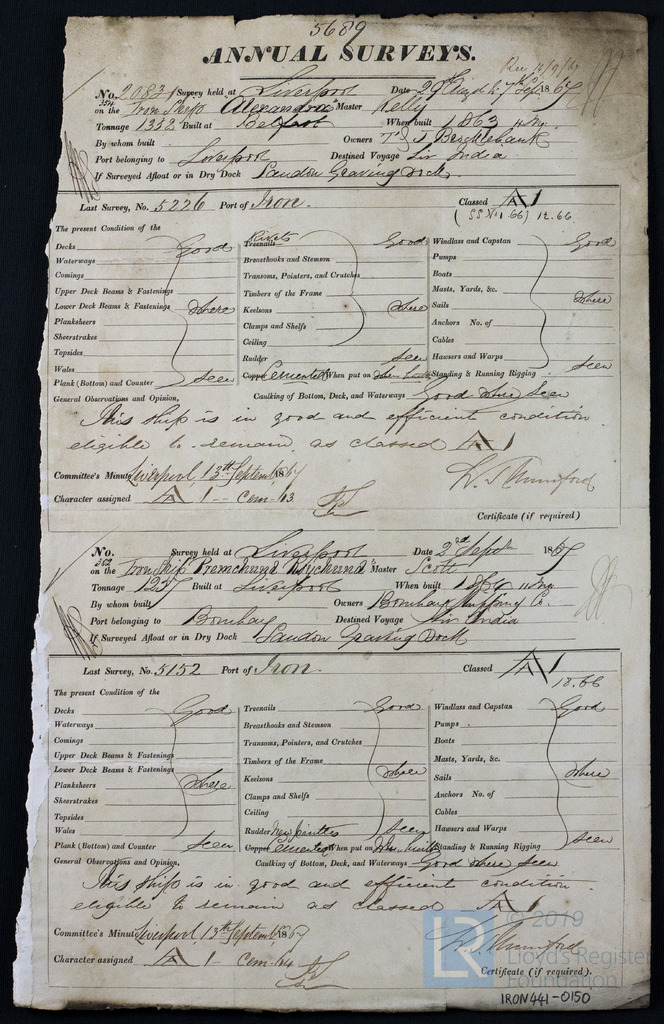 5689
ANNUAL SURVEYS.
No. 2083 Survey held at Liverpool Date 29th Augt & 7th Sept 1867
354
on the Iron Ship Alexandra Master Kelly
Tonnage 1352 Built at Belfast When built 1863 11 Mo.
By whom built Owners T & J Brocklebank
Port belonging to Liverpool Destined Voyage India
If Surveyed Afloat or in Dry Dock Sandon Graving Dock
Last Survey, No. 5226 Port of Iron. Classed A 1
(SS No 1 66) 12.66
The present Condition of the
Decks Good
Waterways
Comings
Upper Deck Beams & Fastenings
Lower Deck Beams & Fastenings where
Planksheers
Sheerstrakes
Topsides
Wales
Plank (Bottom) and Counter seen
Rivets
Treenails Good
Breasthooks and Stemson
Transoms, Pointers, and Crutches
Timbers of the Frame
Keelsons where
Clamps and Shelfs
Ceiling
Rudder seen
Copper Cemented When put on when built
Windlass and Capstan Good
Pumps
Boats
Masts, Yards, &c.
Sails where
Anchors No. of
Cables
Hawsers and Warps
Standing & Running Rigging seen
General Observations and Opinion, Caulking of Bottom, Deck, and Waterways Good where seen
This ship is in good and efficient condition
eligible to remain as classed A 1
Committee's Minute Liverpool, 13th September 1867
Character assigned A 1 - Cem. 63
Certificate (if required)
No. Survey held at Liverpool Date 2nd Sept 1867
362
on the Iron Ship "Premchund Roychund" Master Scott
Tonnage 1257 Built at Liverpool When built 1864 11 Mo
By whom built Owners Bombay Shipping Co.
Port belonging to Bombay Destined Voyage India
If Surveyed Afloat or in Dry Dock Sandon Graving Dock
Last Survey, No. 5152 Port of Iron. Classed A 1
The present Condition of the
Decks Good
Waterways
Comings
Upper Deck Beams & Fastenings
Lower Deck Beams & Fastenings
Planksheers where
Sheerstrakes
Topsides
Wales
Plank (Bottom) and Counter seen
Treenails Good
Breasthooks and Stemson
Transoms, Pointers, and Crutches
Timbers of the Frame
Keelsons where
Clamps and Shelfs
Ceiling
Rudder New pintles seen
Copper Cemented When put on When built
Windlass and Capstan Good
Pumps
Boats
Masts, Yards, &c.
Sails where
Anchors No. of
Cables
Hawsers and Warps
Standing & Running Rigging seen
General Observations and Opinion, Caulking of Bottom, Deck, and Waterways Good where seen
This ship is in good and efficient condition
eligible to remain as classed A 1
Committee's Minute Liverpool, 13th September 1867
Character assigned A 1 - Cem. 64
Certificate (if required).
LR © 2019
Lloyd's Register
Foundation
IRON441-0150